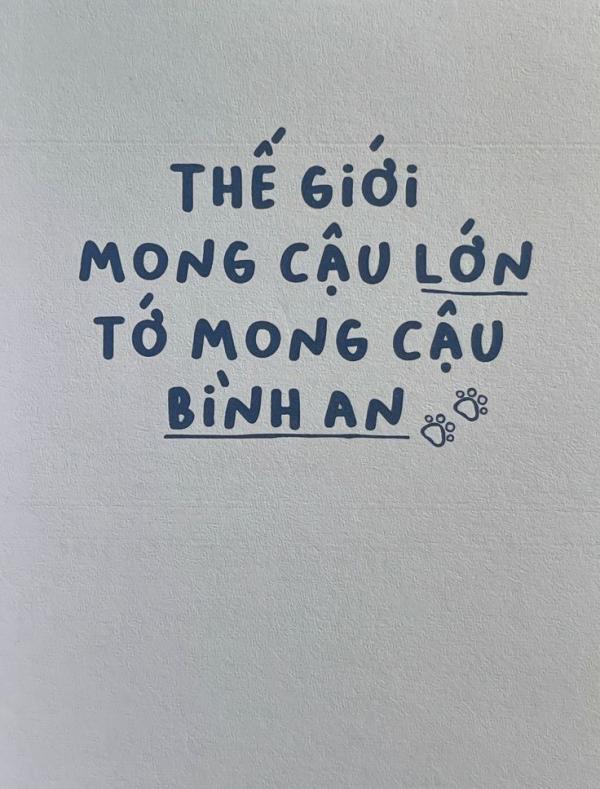 THẾ GiỚi
MONG CẬU LỚN
TỚ MONG CẬU
BìNH AN